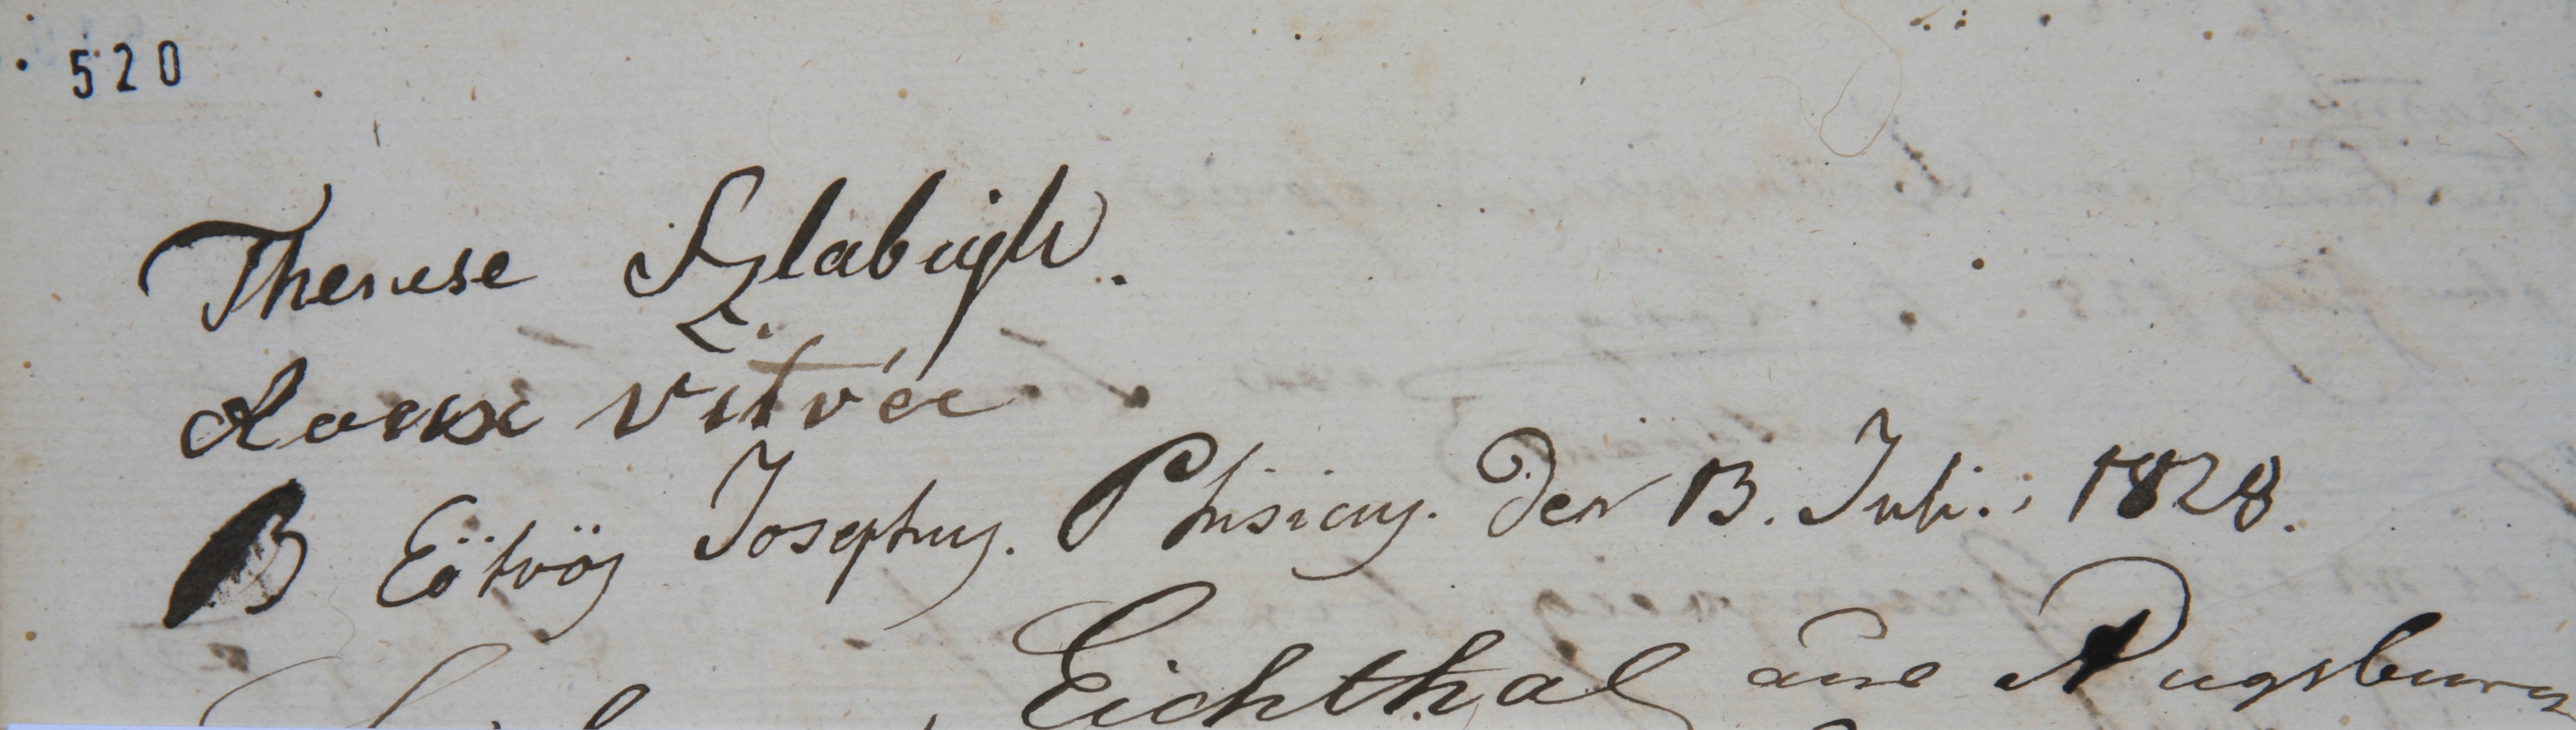 520
Therese Szlabigh.
Vitvér
B Eötvös Josephus. Phisicus. Den 13. Juli. 1828.
Eichthal aus Augsburg